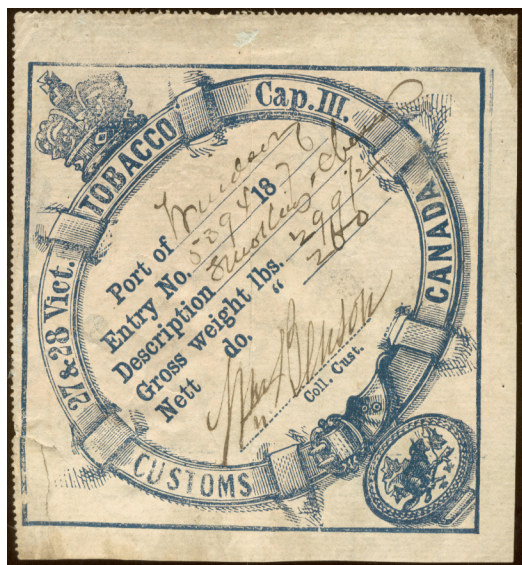 27 & 28 Vict.
TOBACCO
Cap. III.
CANADA
CUSTOMS
Port of Windsor
Entry No. 5394 18
Description Smoking
Gross weight lbs. 299 1/2
Nett do. " 260
Wm Benson
Coll. Cust.